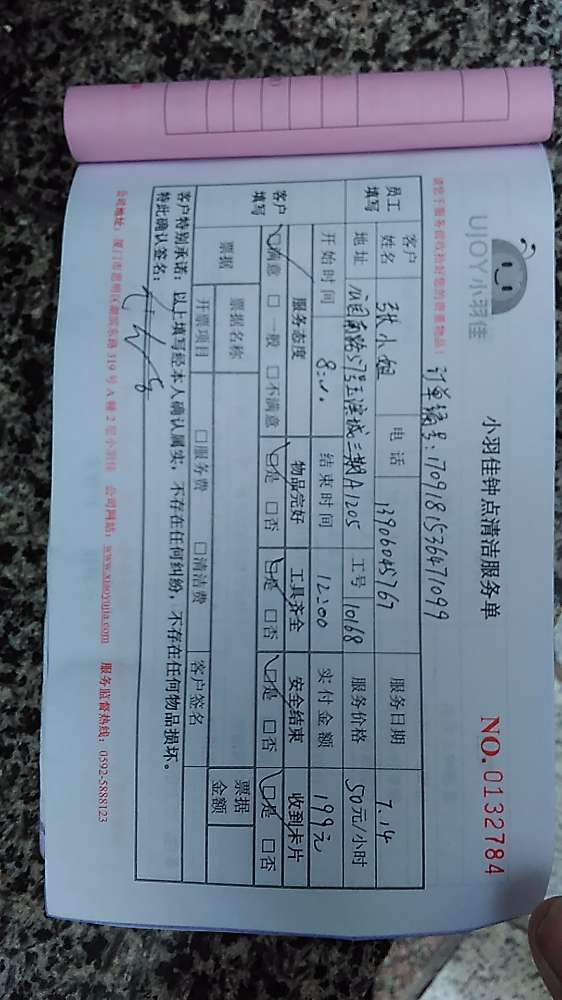 UJOY小羽佳
小羽佳钟点清洁服务单
NO. 0132784
请您于服务前收拾好您的贵重物品！
订单编号：170918153647109​9
员工填写
客户姓名 张小姐 电话 13906048767 服务日期 7.14
地址 57号 二期A1205 工号 10168 服务价格 50元/小时
开始时间 8:00 结束时间 12:00 实付金额 199元
客户填写
服务态度 物品完好 工具齐全 安全结束 收到卡片
☑满意 □一般 □不满意 ☑是 □否 ☑是 □否 ☑是 □否 ☑是 □否
票据 票据名称 票据金额
开票项目 □服务费 □清洁费 客户签名
客户特别承诺：以上填写经本人确认属实，不存在任何纠纷，不存在任何物品损坏。
特此确认签名：
公司地址：厦门市思明区湖滨东路319号A幢2层小羽佳 公司网站：www.xiaoyujia.com 服务监督热线：0592-5888123